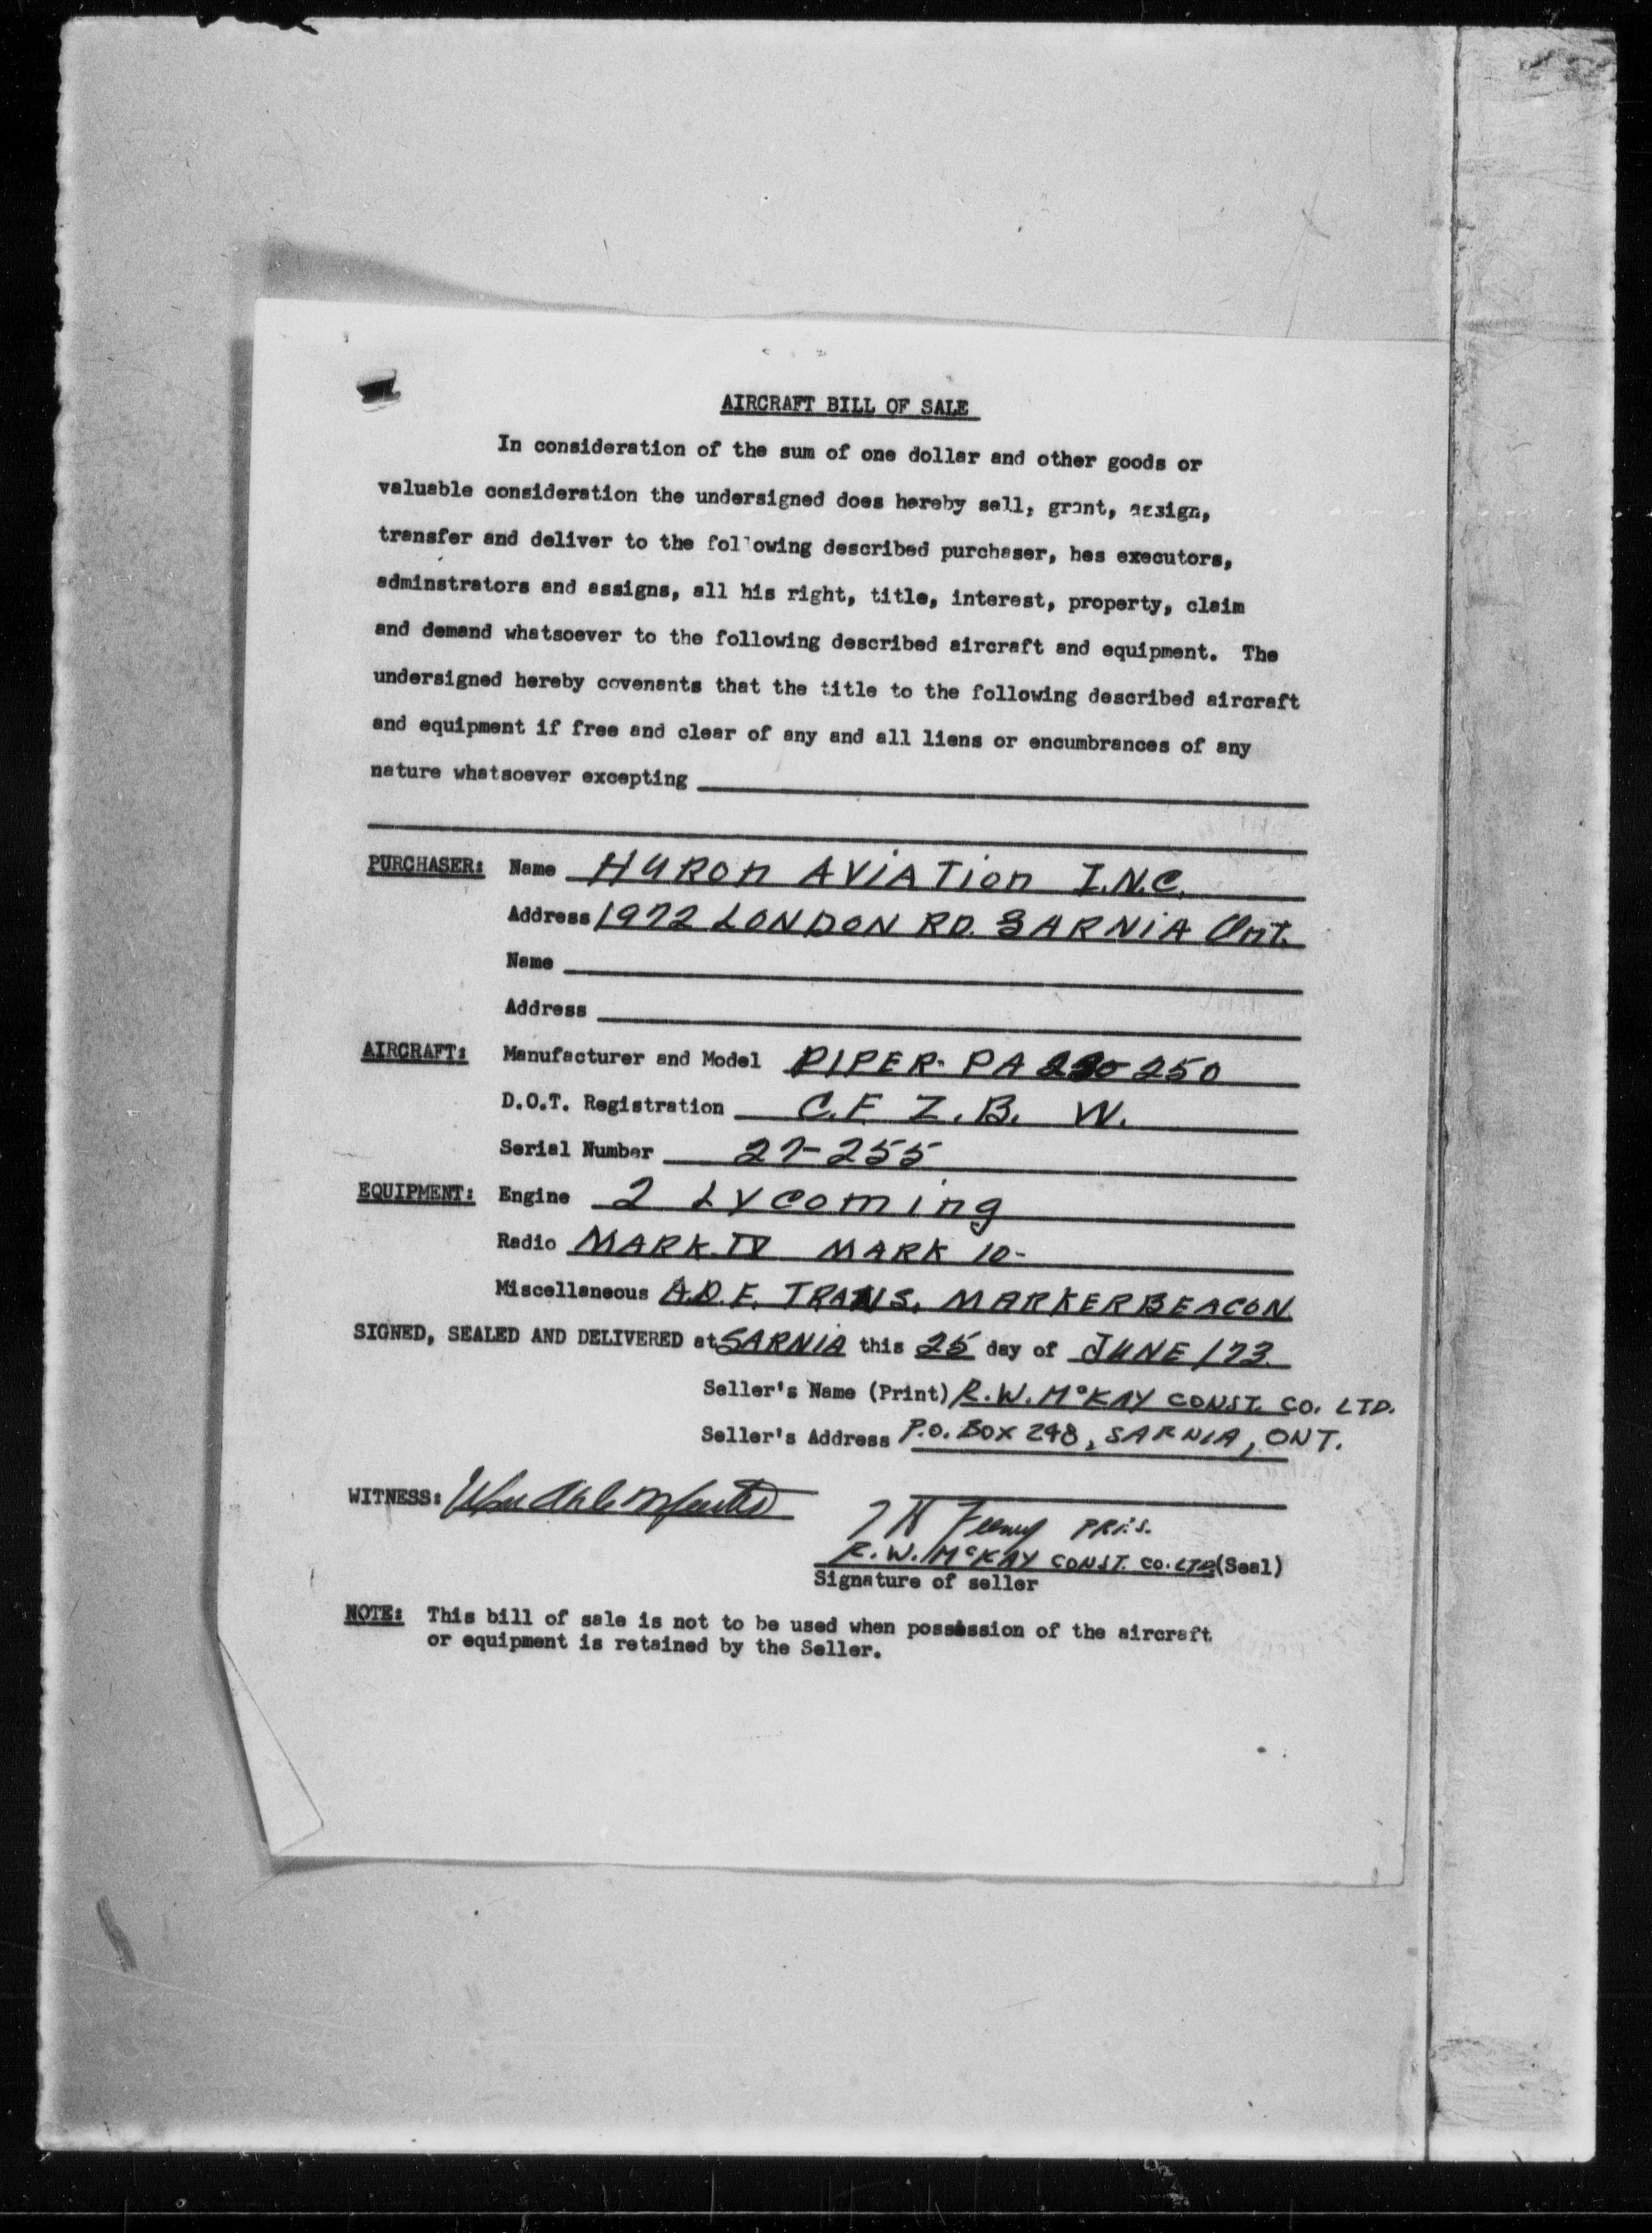 AIRCRAFT BILL OF SALE
In consideration of the sum of one dollar and other goods or
valuable consideration the undersigned does hereby sell, grant, assign,
transfer and deliver to the following described purchaser, hes executors,
adminstrators and assigns, all his right, title, interest, property, claim
and demand whatsoever to the following described aircraft and equipment. The
undersigned hereby covenants that the title to the following described aircraft
and equipment if free and clear of any and all liens or encumbrances of any
nature whatsoever excepting
PURCHASER: Name HURON AVIATION I.N.C.
Address 1972 LONDON RD. SARNIA Ont.
Name
Address
AIRCRAFT: Manufacturer and Model PIPER- PA 250
D.O.T. Registration C.F. Z.B. W.
Serial Number 27-255
EQUIPMENT: Engine 2 LYCOMING
Radio MARK IV MARK 10-
Miscellaneous A.D.F. TRANS. MARKERBEACON.
SIGNED, SEALED AND DELIVERED at SARNIA this 25 day of JUNE /73.
Seller's Name (Print) R.W. McKAY CONST. CO. LTD.
Seller's Address P.O. BOX 298, SARNIA, ONT.
WITNESS:
PRES.
R.W. McKAY CONST. CO. LTD (Seal)
Signature of seller
NOTE: This bill of sale is not to be used when possession of the aircraft
or equipment is retained by the Seller.